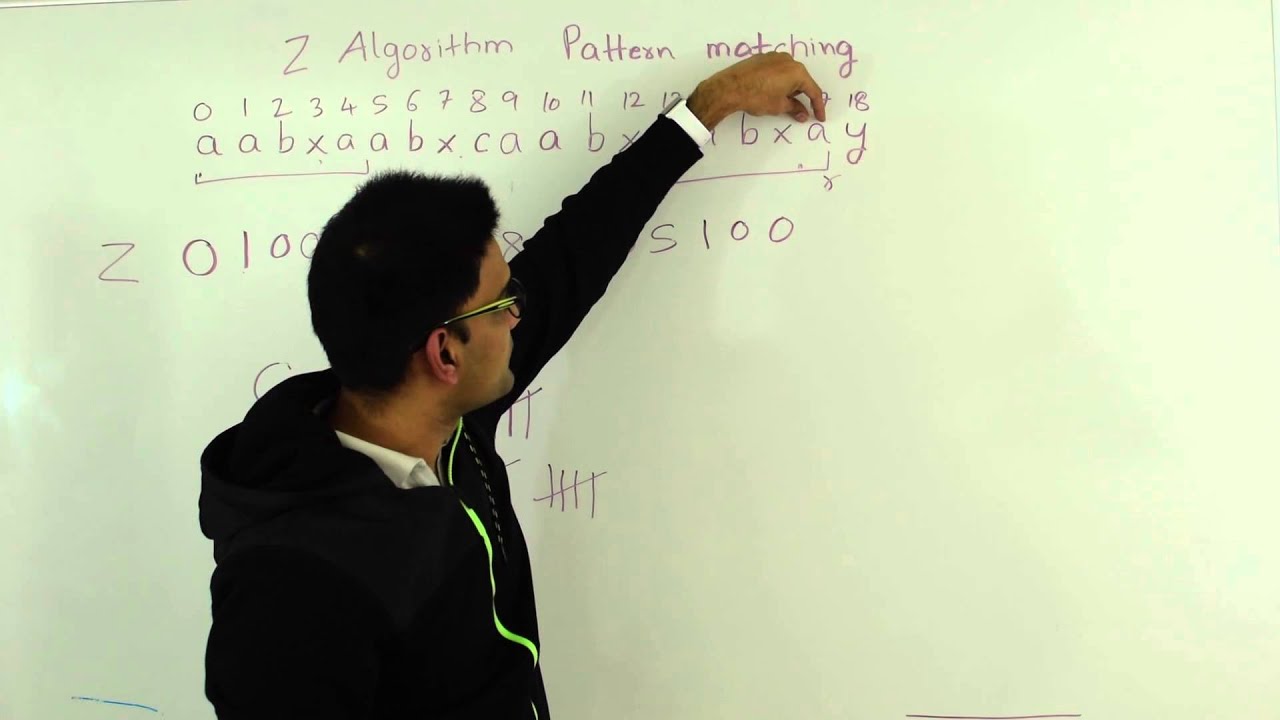 Z Algorithm Pattern matching
0 1 2 3 4 5 6 7 8 9 10 11 12 13 18
a a b x a a b x c a a b x b x a y
r
Z 0 1 0 0 8 5 1 0 0